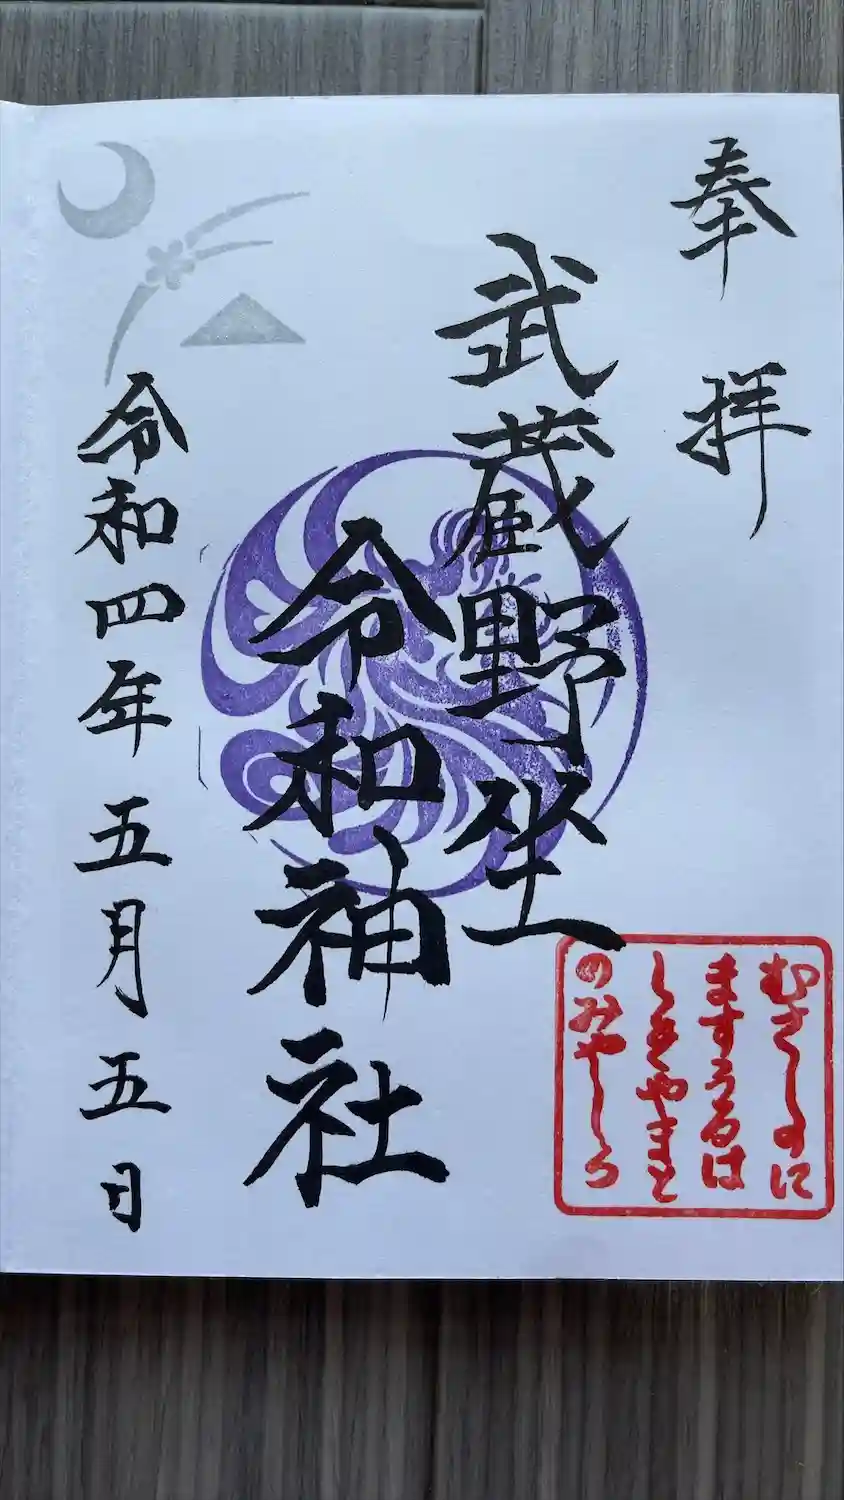 奉拝
武蔵野坐
令和神社
令和四年五月五日
むさしのに
ますうるは
しきやまと
のみやしろ